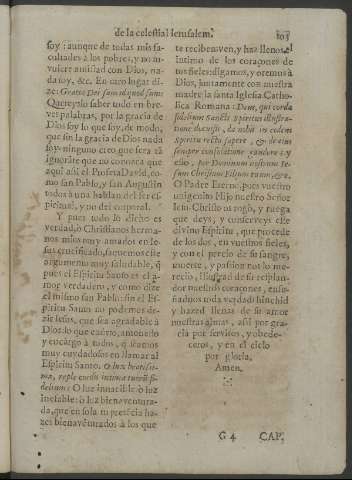 de la celestial Ierusalem. 103
soy: aunque de todas mis fa-
cultades à los pobres, y no tu-
uiere amistad con Dios, na-
da soy, &c. En otro lugar di-
ze: Gratia Dei sum id quod sum:
Quereyslo saber todo en bre-
ves palabras, por la gracia de
Dios soy lo que soy, de modo,
que sin la gracia de Dios nada
soy, ninguno creo que sera tã
ignorãte que no conozca que
aqui assi el Profeta Dauid, co-
mo san Pablo, y san Augustin
todos à una hablan del ser es-
piritual, y no del corporal.
Y pues todo lo dicho es
verdad, ò Christianos herma-
nos mios muy amados en Ie-
sus crucificado, saquemos este
argumento muy saludable, q̃
pues el Espiritu Santo es el a-
mor verdadero, y como dize
el mismo san Pablo: sin el Es-
piritu Santo no podemos de-
zir Iesus, que sea agradable à
Dios: lo que quiero, amonesto
y encargo à todos, q̃ seamos
muy cuydadosos en llamar al
Espiritu Santo. O lux beatissi-
ma, reple cordis intima tuorũ fi-
delium: O luz innacible ò luz
inefable: ò luz bienaventura-
da, que en sola tu presẽcia ha-
zes bienavẽturados à los que
te reciben: ven, y haz llenos el
intimo de los coraçones de
tus fieles: digamos, y oremos à
Dios, juntamente con nuestra
madre la santa Iglesia Catho-
lica Romana: Deus, qui corda
fidelium Sancti Spiritus illustra-
tione docuisti, da nobis in eodem
Spiritu recta sapere, & de eius
semper consolatione gaudere: y
esto, por Dominum nostrum Ie-
sum Christum Filium tuum, &c.
O Padre Eterno, pues vuestro
unigenito Hijo nuestro Señor
Iesu Christo os rogò, y ruega
que deys, y conserveys esse
divino Espiritu, que procede
de los dos, en vuestros fieles,
y con el precio de su sangre,
muerte, y passion nos lo me-
recio, illustrad de su resplan-
dor nuestros coraçones, ense-
ñadnos toda verdad: hinchid
y hazed llenas de su amor
nuestras almas, assi por gra-
cia por serviros, y obede-
ceros, y en el cielo
por gloria,
Amen.
G 4 CAP.